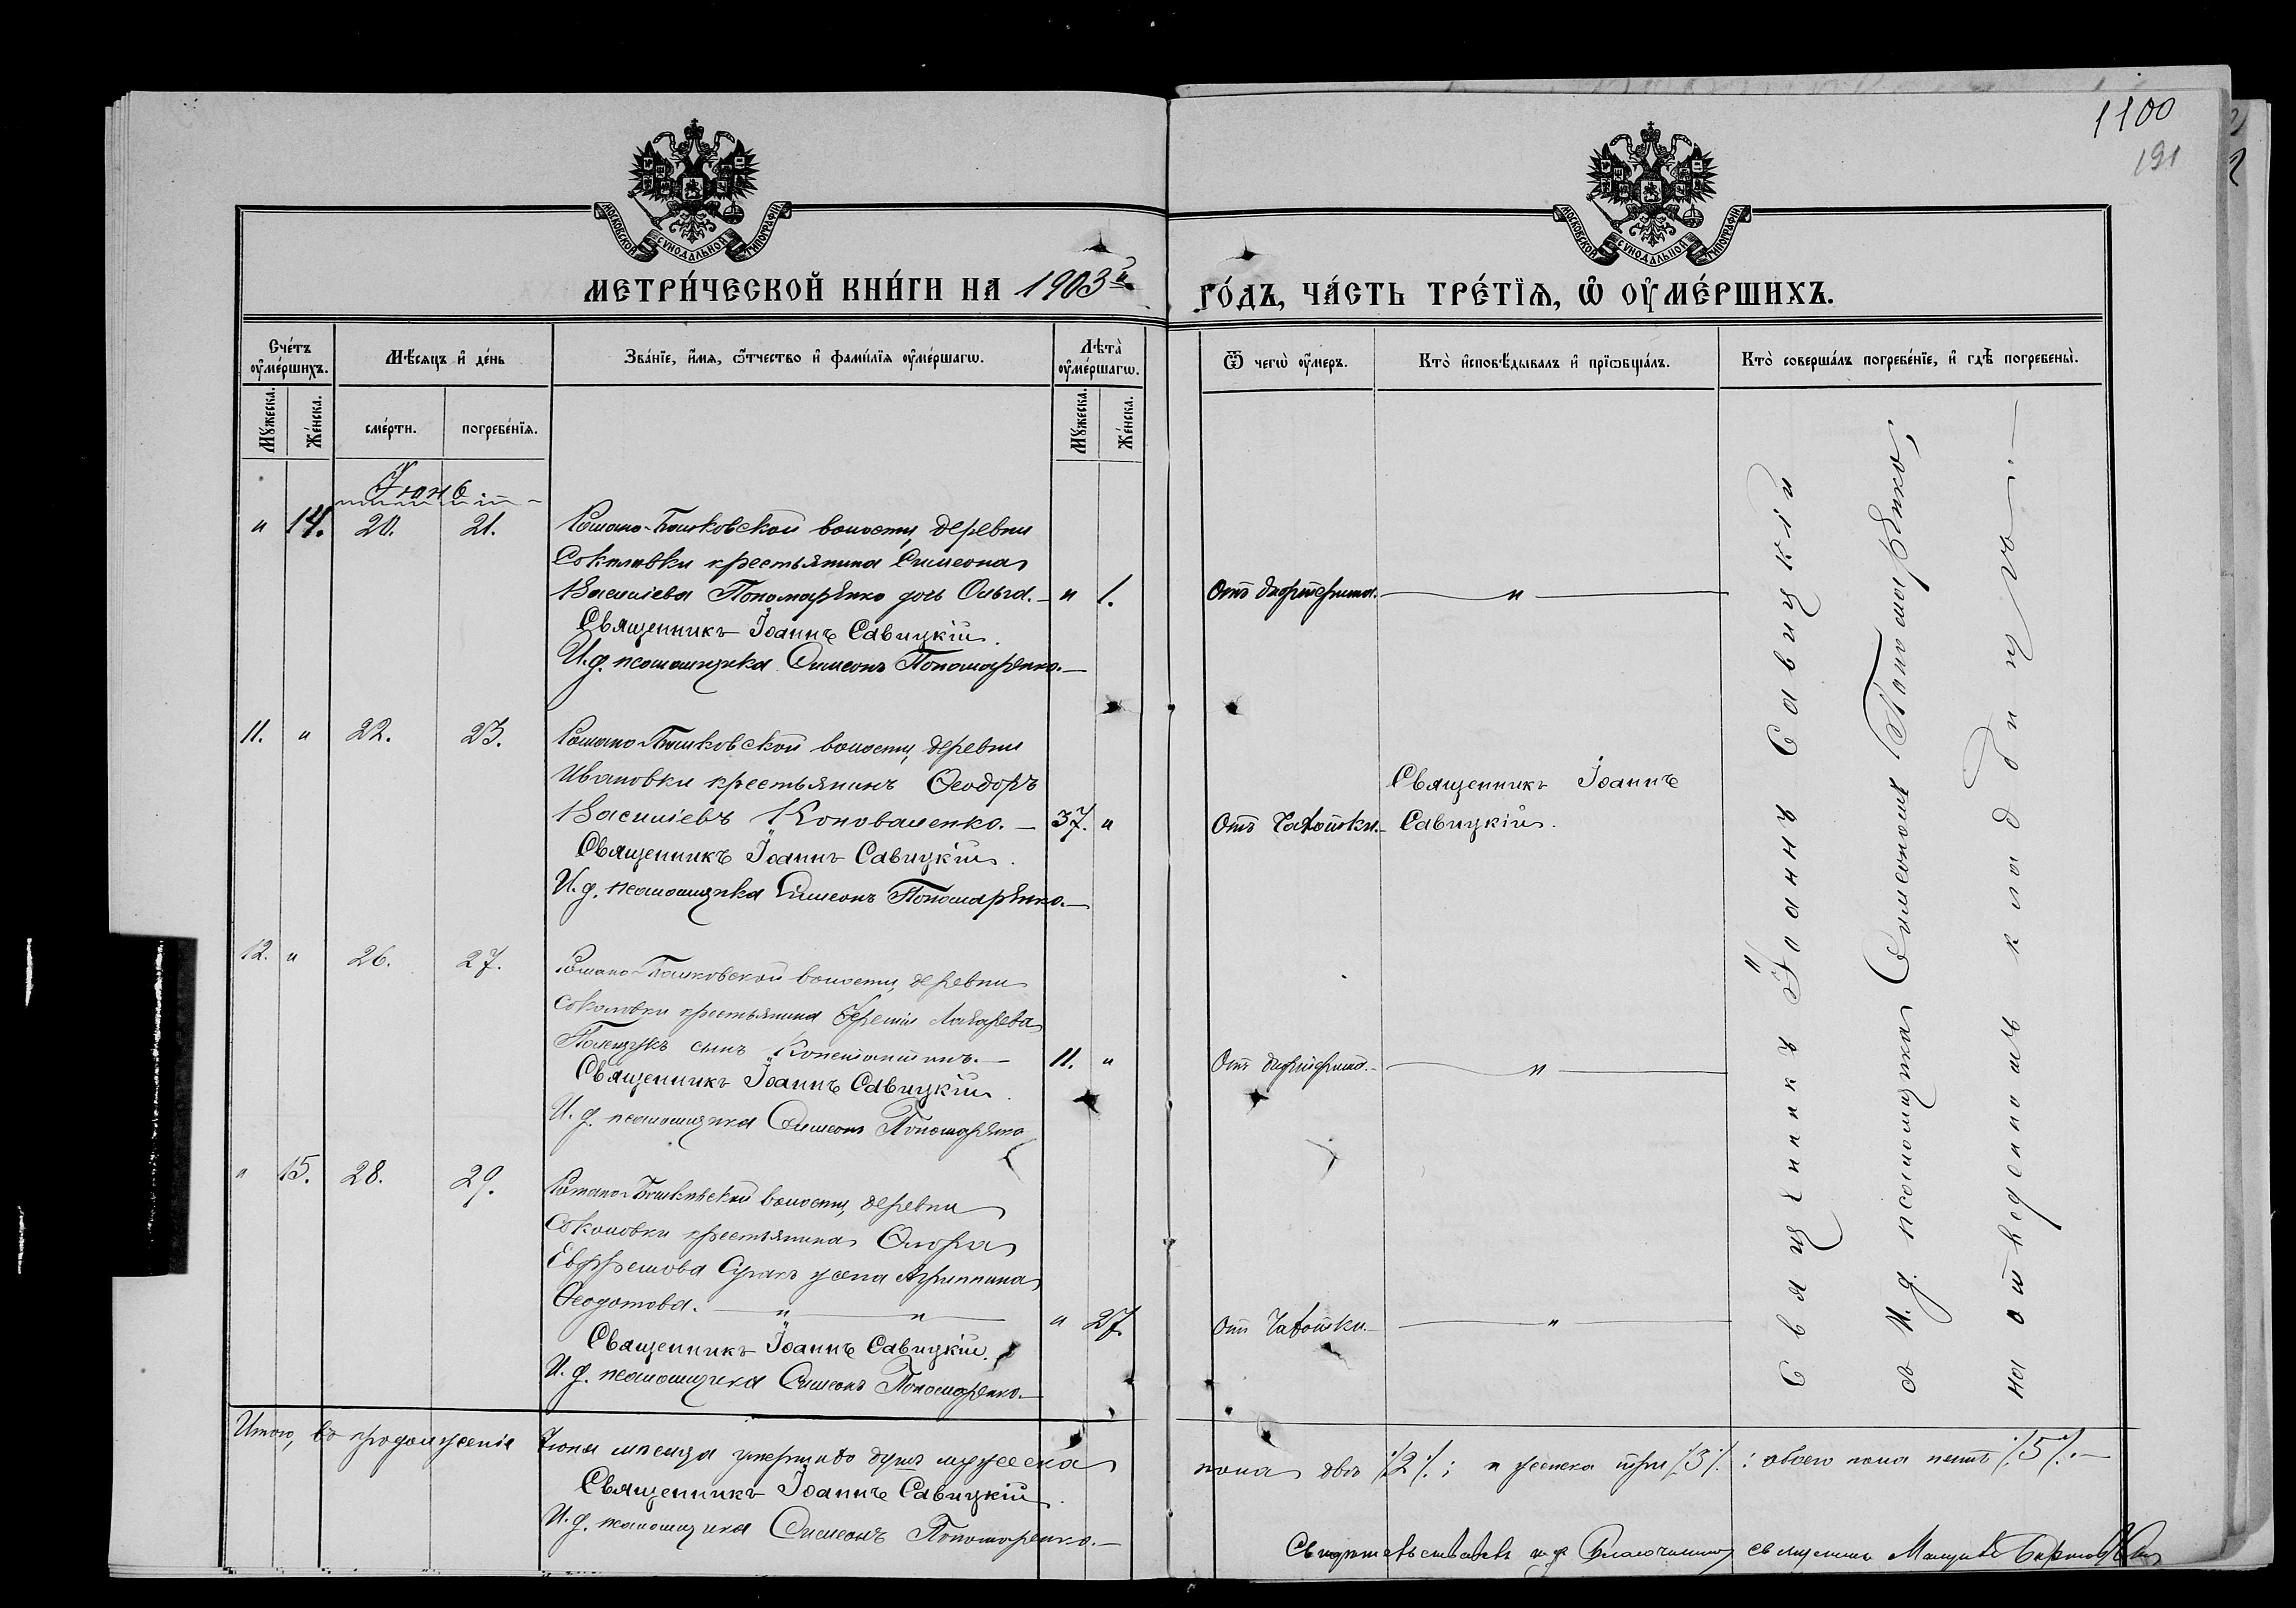 1100
191
МОСКОВСКОЙ СѴНОДАЛЬНОЙ ТИПОГРАФІИ
МОСКОВСКОЙ СѴНОДАЛЬНОЙ ТИПОГРАФІИ
МЕТРИ́ЧЕСКОЙ КНИ́ГИ НА 1903й ГО́ДЪ, ЧА́СТЬ ТРЕ́ТЇѦ, Ѡ ОУ҆МЕ́РШИХЪ.
Сче́тъ оу҆ме́ршихъ.
Мѣ́сяцъ и҆ де́нь
Зва́нїе, и҆́мя, ѻ҆́тчество и҆ фами́лїя оу҆ме́ршагѡ.
Лѣ́та оу҆ме́ршагѡ.
Ѿ чегѡ̀ оу҆́меръ.
Кто̀ и҆сповѣ́дывалъ и҆ прїѡбща́лъ.
Кто̀ соверша́лъ погребе́нїе, и҆ гдѣ̀ погребены̀.
Мꙋ́жеска.
Же́нска.
сме́рти.
погребе́нїя.
Мꙋ́жеска.
Же́нска.
Іюнь
" 14. 20. 21. Романо-Балковской волости, деревни
Соколовки крестьянина Симеона
Василіева Пономаренко дочь Ольга.— " 1. Отъ дифтерита. — " —
Священникъ Іоаннъ Савицкій.
И. д. псаломщика Симеонъ Пономаренко.—
11. " 22. 23. Романо-Балковской волости, деревни
Ивановки крестьянинъ Ѳеодоръ
Василіевъ Коноваленко.— 37. " Отъ чахотки.— Священникъ Іоаннъ
Савицкій.
Священникъ Іоаннъ Савицкій.
И. д. псаломщика Симеонъ Пономаренко.—
12. " 26. 27. Романо-Балковской волости, деревни
Соколовки крестьянина Іереміи Лазарева
Полещукъ сынъ Константинъ.— 11. " Отъ дифтерита.— — " —
Священникъ Іоаннъ Савицкій.
И. д. псаломщика Симеонъ Пономаренко
" 15. 28. 29. Романо-Балковской волости, деревни
Соколовки крестьянина
жена Агриппина
Ѳеодотова. — " — " — " 27. Отъ чахотки.— — " —
Священникъ Іоаннъ Савицкій.
И. д. псаломщика Симеонъ Пономаренко.—
Священникъ Іоаннъ Савицкій
съ и. д. псаломщика Симеономъ Пономаренко,
на отведенномъ кладбищѣ.—
Итого, въ продолженіе Іюня мѣсяца умершихъ душъ мужеска пола два /.2/.; и женска три /.3/.: обоего пола пять /.5/.—
Священникъ Іоаннъ Савицкій.
И. д. псаломщика Симеонъ Пономаренко.—
Благочинного священникъ